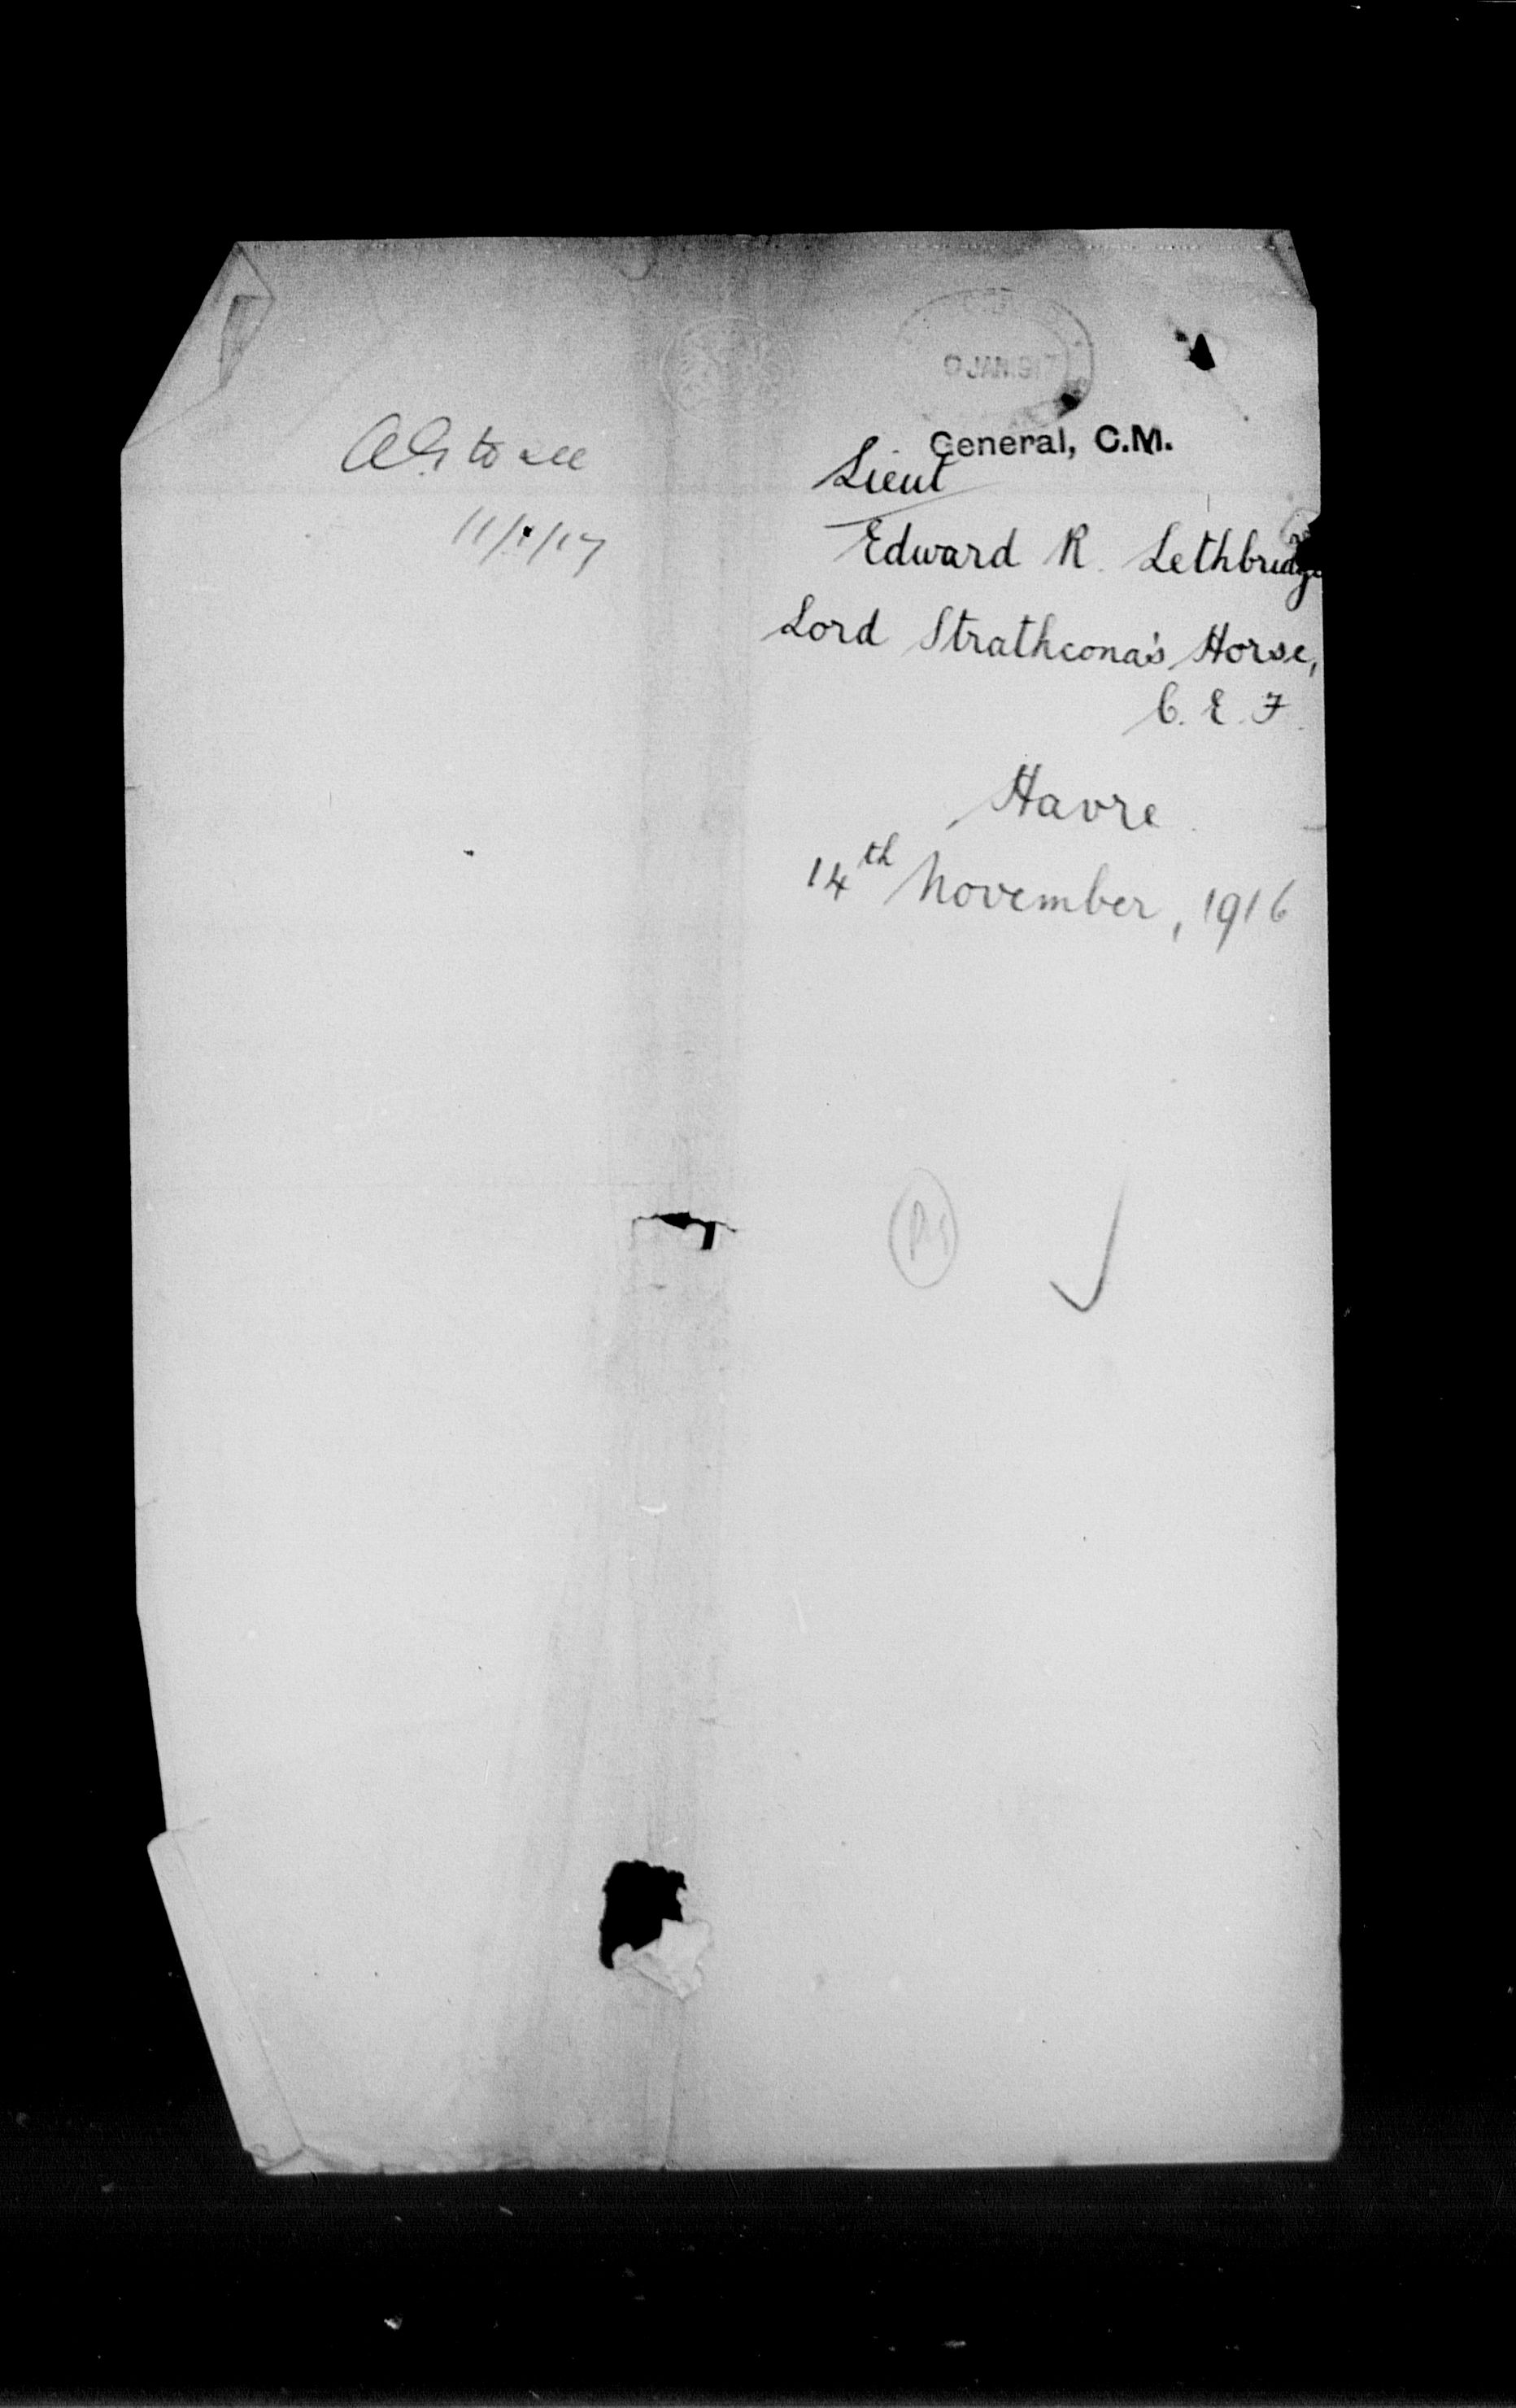 AG to see
11/1/17
JAN 1917
General, C.M.
Lieut
Edward R. Lethbridge
Lord Strathcona's Horse,
C. E. F.
Havre
14th November, 1916